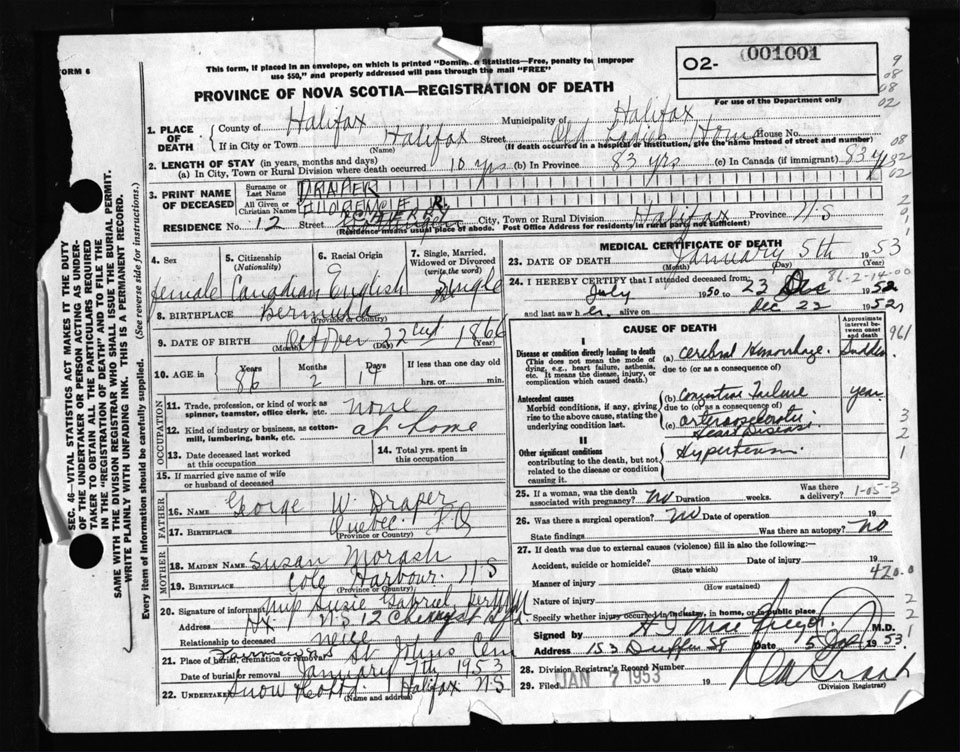 FORM 6
This form, if placed in an envelope, on which is printed "Dominion Statistics—Free, penalty for improper
use $50," and properly addressed will pass through the mail "FREE"
PROVINCE OF NOVA SCOTIA—REGISTRATION OF DEATH
02- 001001
For use of the Department only
9
08
08
02
1. PLACE OF DEATH
County of Halifax Municipality of Halifax
If in City or Town Halifax Street Old Ladies Home House No.
(Name) (If death occurred in a hospital or institution, give the name instead of street and number)
2. LENGTH OF STAY (in years, months and days)
(a) In City, Town or Rural Division where death occurred 10 yrs (b) In Province 83 yrs (c) In Canada (if immigrant) 83 y
3. PRINT NAME OF DECEASED
Surname or Last Name DRAPER
All Given or Christian Names FLORENCE R.
RESIDENCE No. 12 Street CHERRY City, Town or Rural Division Halifax Province N S
(Residence means usual place of abode. Post Office Address for residents in rural parts not sufficient)
4. Sex female
5. Citizenship (Nationality) Canadian
6. Racial Origin English
7. Single, Married, Widowed or Divorced (write the word) Single
8. BIRTHPLACE Bermuda
(Province or Country)
9. DATE OF BIRTH October 22 1866
(Month) (Day) (Year)
10. AGE in Years Months Days If less than one day
86 2 hrs. or min.
OCCUPATION
11. Trade, profession, or kind of work as spinner, teamster, office clerk, etc. none
12. Kind of industry or business, as cotton-mill, lumbering, bank, etc. at home
13. Date deceased last worked at this occupation
14. Total yrs. spent in this occupation
15. If married give name of wife or husband of deceased
FATHER
16. Name George W. Draper
17. BIRTHPLACE Quebec. P Q
(Province or Country)
MOTHER
18. MAIDEN NAME Susan Morash
19. BIRTHPLACE Cole Harbour. N S
(Province or Country)
20. Signature of informant Susie Gabriel per
Address Hx N.S 12 Cherry St
Relationship to deceased neice
21. Place of burial, cremation or removal St Johns Cem
Date of burial or removal January 7th 1953
22. Undertaker Snow Halifax N S
(Name and address)
MEDICAL CERTIFICATE OF DEATH
23. DATE OF DEATH January 5th 1953
(Month) (Day) (Year)
86-2-14-00
24. I HEREBY CERTIFY that I attended deceased from:
July 1950 to 23 Dec 1952
and last saw her alive on Dec 23 1952
CAUSE OF DEATH
Approximate interval between onset and death
I
Disease or condition directly leading to death (a) Cerebral Hemorrhage. Sudden
(This does not mean the mode of dying, e.g., heart failure, asthenia, etc. It means the disease, injury, or complication which caused death.)
due to (or as a consequence of)
Antecedent causes (b) Congestive Failure year
Morbid conditions, if any, giving rise to the above cause, stating the underlying condition last.
due to (or as a consequence of)
(c) arteriosclerotic
Heart Disease
II
Other significant conditions Hypertension
contributing to the death, but not related to the disease or condition causing it.
961
3
2
1
25. If a woman, was the death associated with pregnancy? No Duration weeks. Was there a delivery? 1-05-3
26. Was there a surgical operation? No Date of operation 19
State findings Was there an autopsy? No
27. If death was due to external causes (violence) fill in also the following:—
Accident, suicide or homicide? Date of injury 19
(State which) 420.0
Manner of injury
(How sustained)
Nature of injury
Specify whether injury occurred in industry, in home, or in public place
Signed by M.D.
Address 153 Duffin St Date 5 Jan 1953
28. Division Registrar's Record Number
29. Filed JAN 7 1953 19
(Division Registrar)
SEC. 46—VITAL STATISTICS ACT MAKES IT THE DUTY
OF THE UNDERTAKER OR PERSON ACTING AS UNDER-
TAKER TO OBTAIN ALL THE PARTICULARS REQUIRED
IN THE "REGISTRATION OF DEATH" AND TO FILE THE
SAME WITH THE DIVISION REGISTRAR WHO SHALL ISSUE THE BURIAL PERMIT.
WRITE PLAINLY WITH UNFADING INK. THIS IS A PERMANENT RECORD.
Every item of information should be carefully supplied. (See reverse side for instructions.)